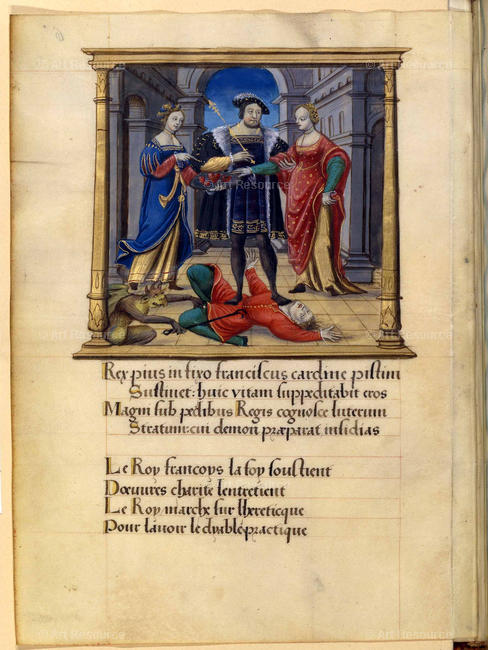 © Art Resource
Rex pius in fixo franciscus cardine pistim
Sustinet: huic vitam suppeditabit eros
Magni sub pedibus Regis cognosce luterum
Stratum: cui demon præparat insidias
Le Roy francoys la foy soustient
Dœuvres charite lentretient
Le Roy marche sur lhereticque
Pour lavoir le dyable practique
© Art Resource